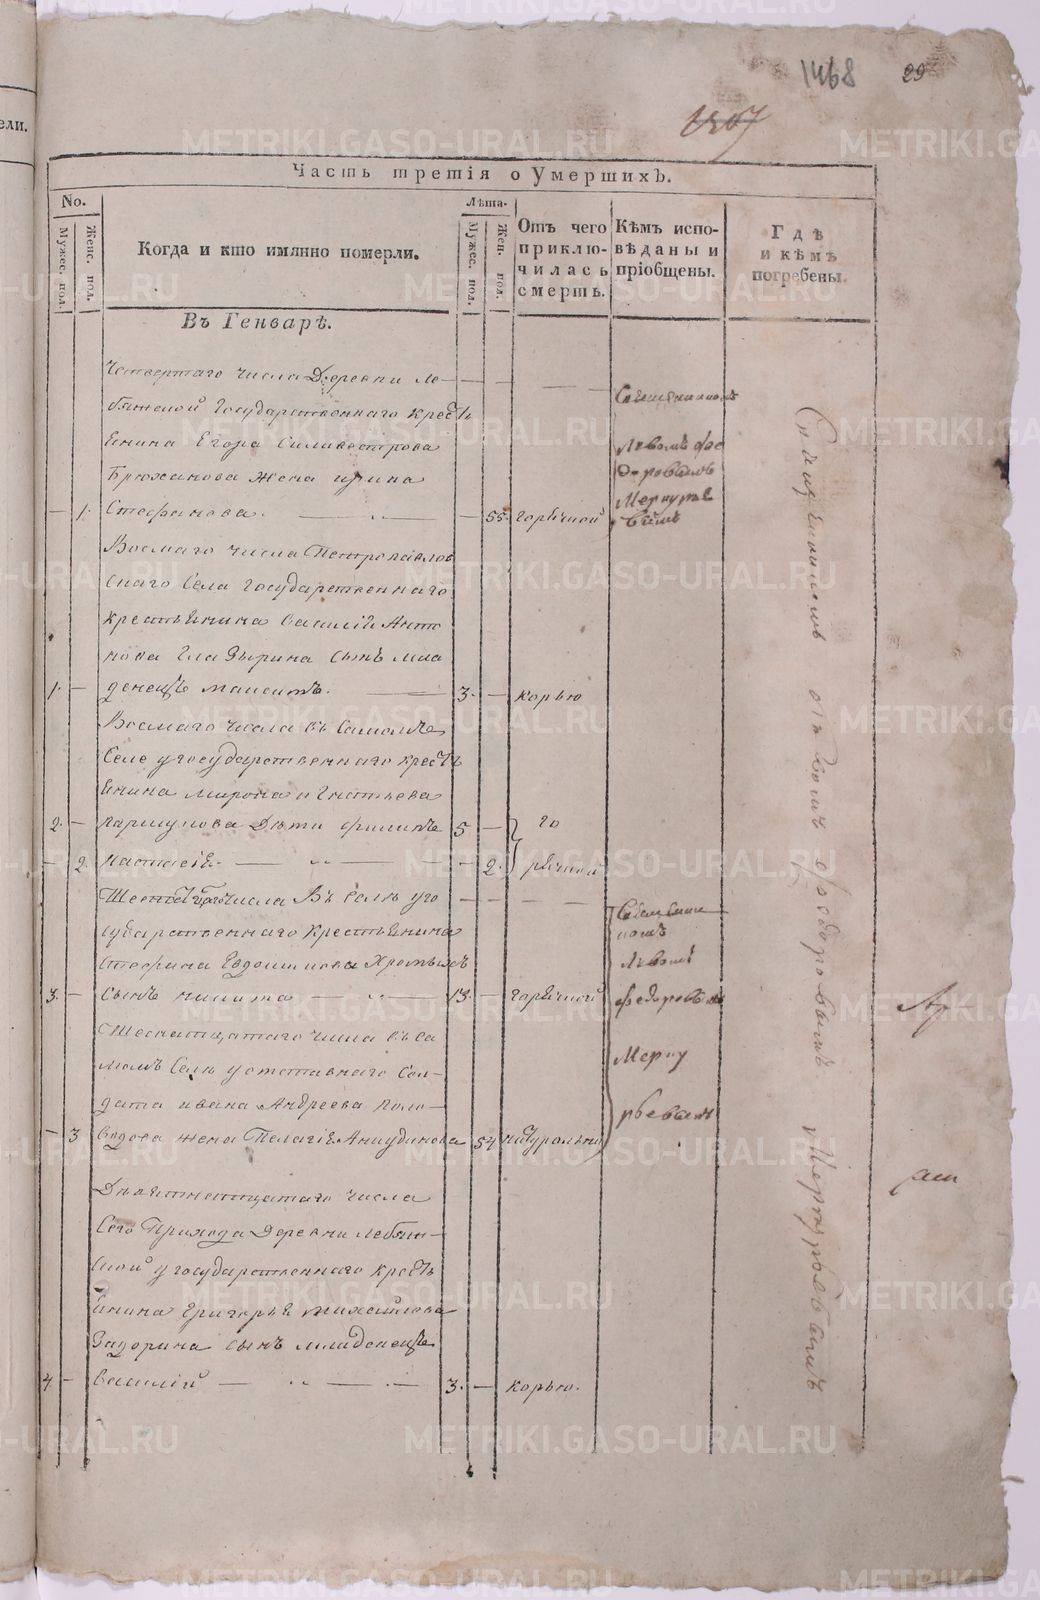 1468 29
1867
ели.
Часть третія о Умершихъ.
No.
Мужес. пол.
Женс. пол.
Когда и кто имянно померли.
Лѣта.
Мужес. пол.
Жен. пол.
Отъ чего приключилась смерть.
Кѣмъ исповѣданы и пріобщены.
Гдѣ и кѣмъ погребены.
Въ Генварѣ.
Четвертаго числа Деревни Ле-
бяжской Государственнаго кресть
янина Егора Силивестрова
Брюханова жена ирина
1. Стефанова. 55. горячкой
Священникомъ
Львомъ Фео
доровымъ
Меркурье
вымъ
Восмаго числа Петропавлов
скаго Села государственнаго
крестьянина Василія Анто
нова Глазырина сынъ мла
1. денецъ 3. корью
Восмаго числа въ Самомъ
Селе у государственнаго кресть
янина Мирона Игнатьева
2. дѣти филипъ 5 го
2. настасія 2. рячкой
числа Въ Селѣ у го
сударственнаго крестьянина
Стефана Евдокимова
3. сынъ никита 13. горячкой
Священни
комъ
Львомъ
Федоровымъ
Мерку
рьевымъ
Шеснатцатаго числа въ са
момъ Селѣ у отставнаго Сол-
дата ивана Андреева Поло-
3 водова жена Пелагія 54 натуральной
Девятнатцатаго числа
Сего Прихода Деревни Лебяж-
ской у государственнаго кресть
янина Григорья михайлова
Задорина сынъ младенецъ
4. Василій 3. корью.
Священникомъ Львомъ Федоровымъ Меркурьевымъ